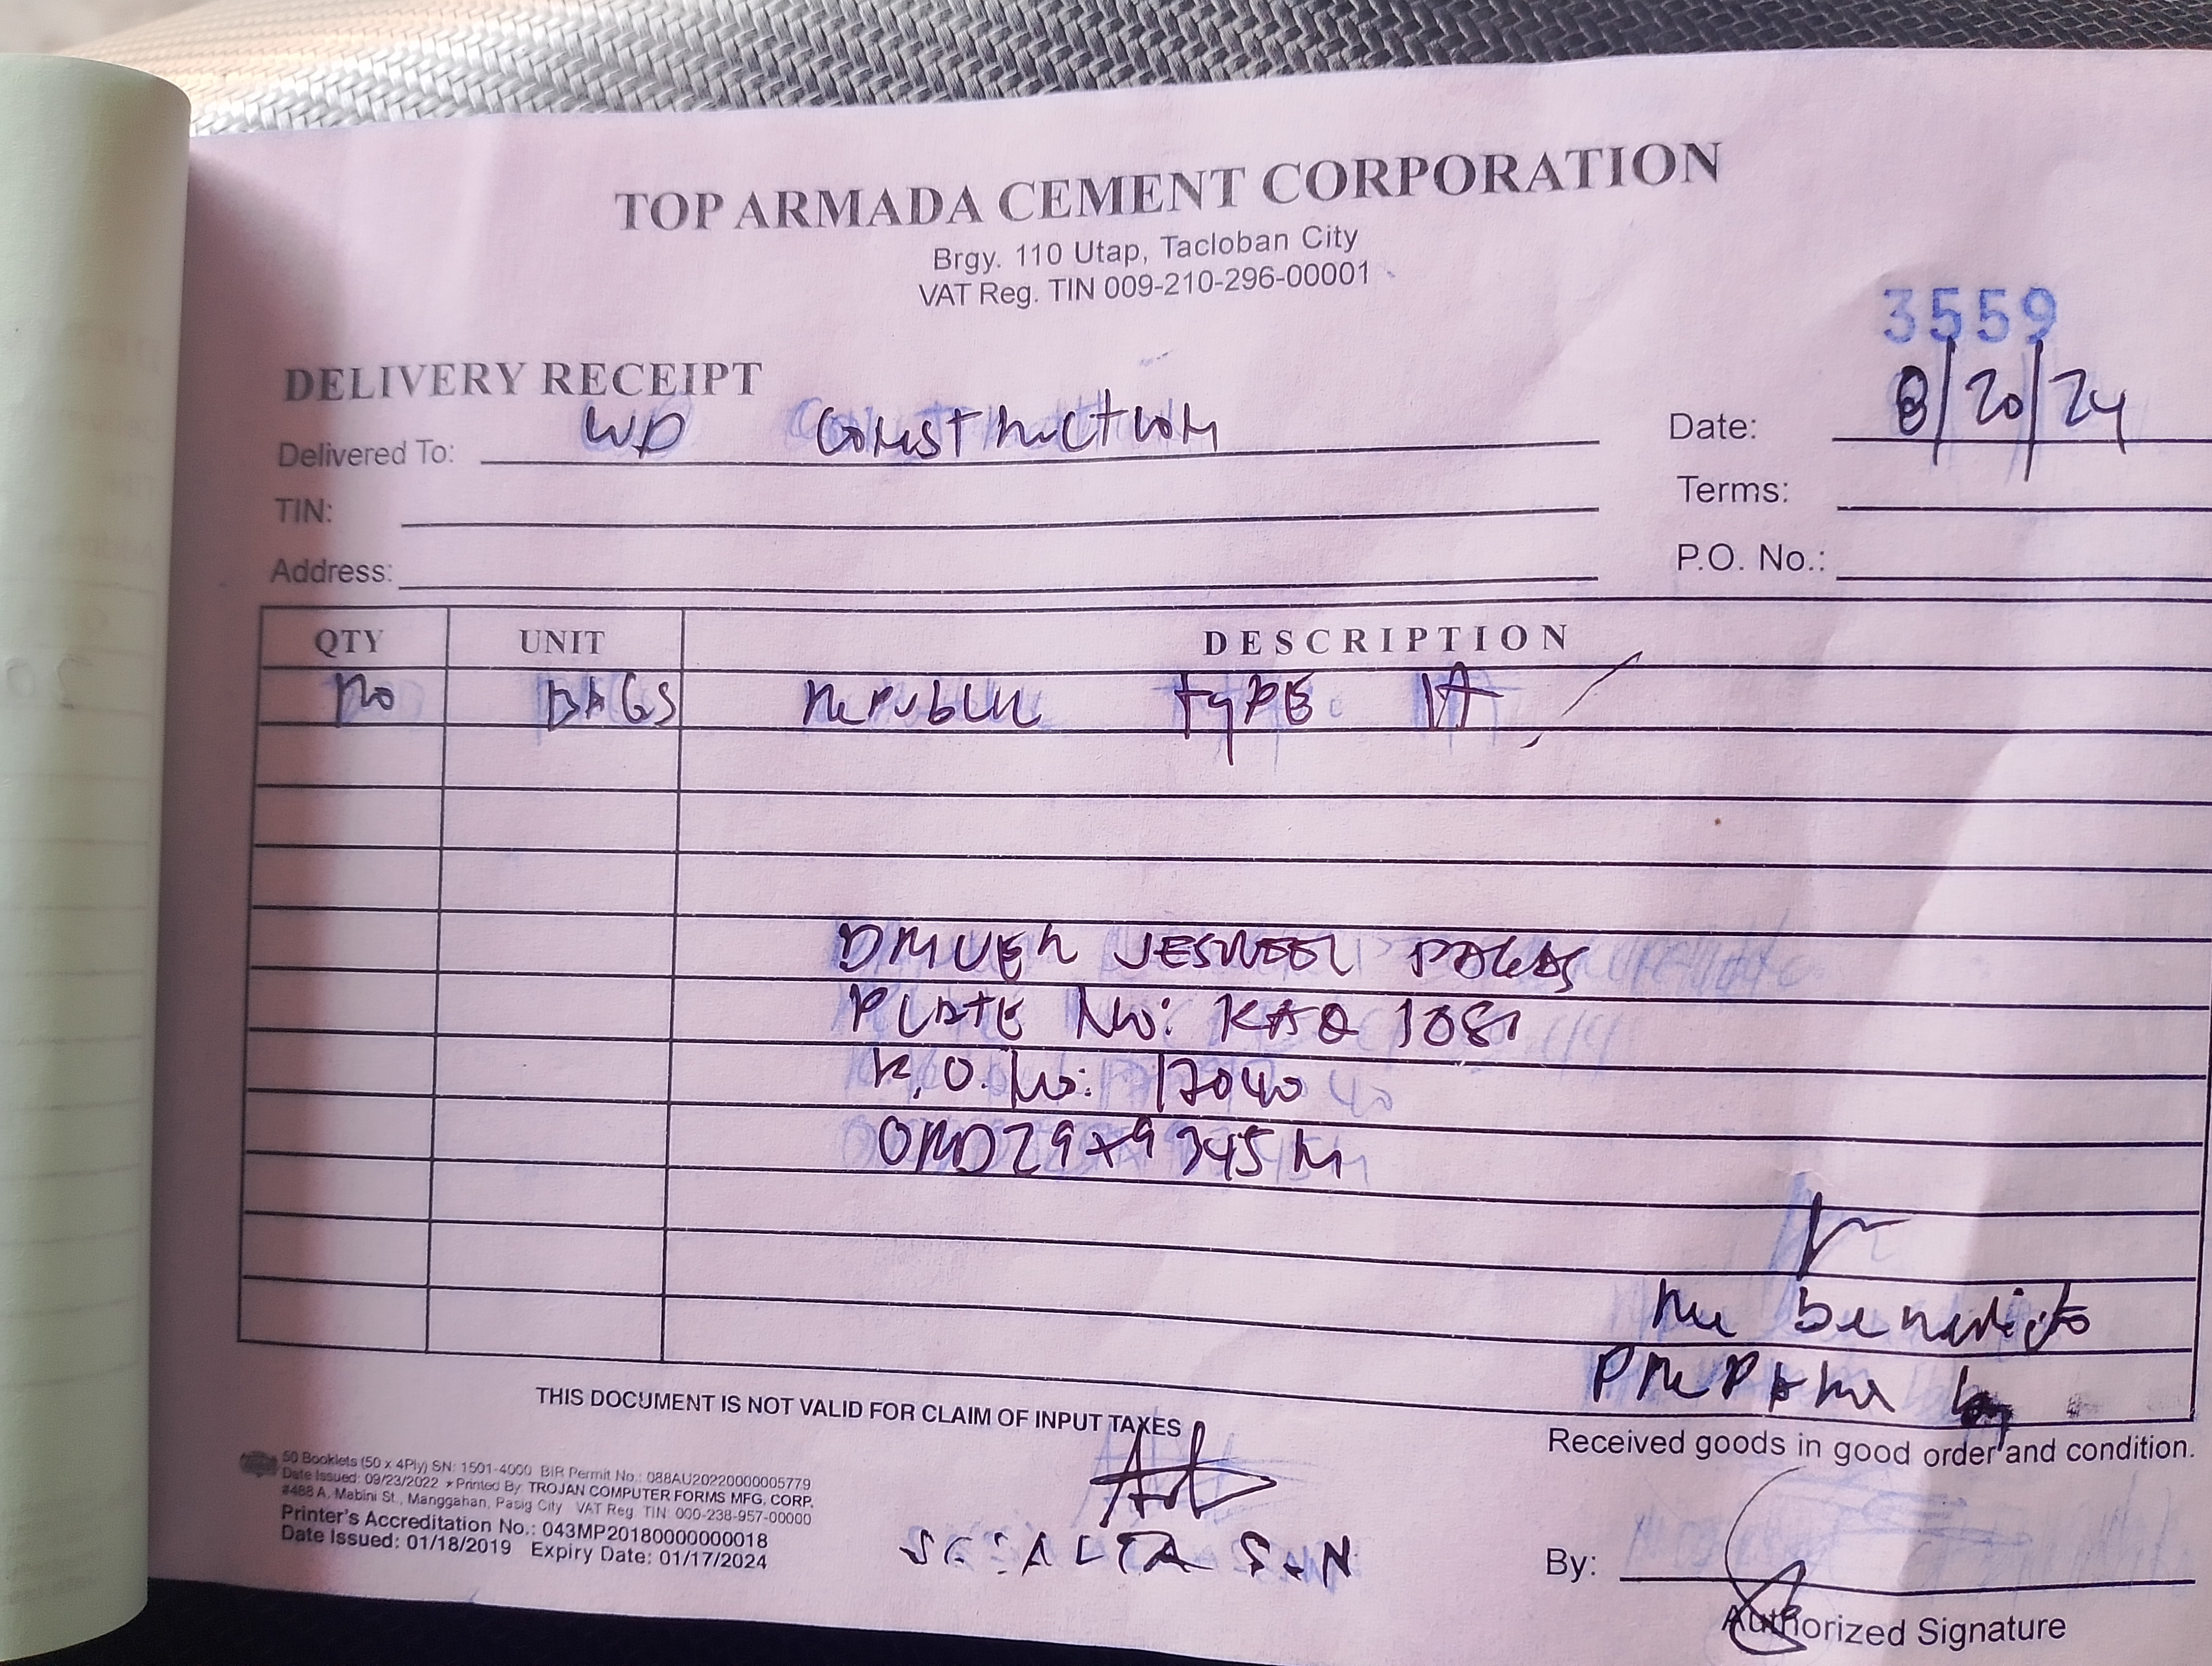 TOP ARMADA CEMENT CORPORATION
Brgy. 110 Utap, Tacloban City
VAT Reg. TIN 009-210-296-00001
3559
DELIVERY RECEIPT
Delivered To: WD Construction
Date: 8/20/24
TIN:
Terms:
Address:
P.O. No.:
QTY UNIT DESCRIPTION
BAGS Republic TYPE 1A
DRIVER
PLATE No: KAQ 1081
No: 17040
benedicto
THIS DOCUMENT IS NOT VALID FOR CLAIM OF INPUT TAXES
Received goods in good order and condition.
50 Booklets (50 x 4Ply) SN: 1501-4000 BIR Permit No.: 088AU20220000005779
Date Issued: 09/23/2022 * Printed By: TROJAN COMPUTER FORMS MFG. CORP.
#488 A. Mabini St., Manggahan, Pasig City VAT Reg. TIN: 000-238-957-00000
Printer's Accreditation No.: 043MP20180000000018
Date Issued: 01/18/2019 Expiry Date: 01/17/2024
By:
Authorized Signature